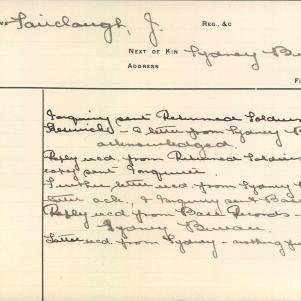 Fairclough, J. REG. &C
NEXT OF KIN Sydney Bu
ADDRESS
Inquiry sent Returned Soldiers
- a letter from Sydney B
acknowledged.
Reply recd. from Returned Soldier
copy sent Inquirer.
Further letter recd. from Sydney
letter ack., & Inquiry sent Base
Reply recd from Base Records -
Sydney Bureau.
Letter recd. from Sydney - nothing fu